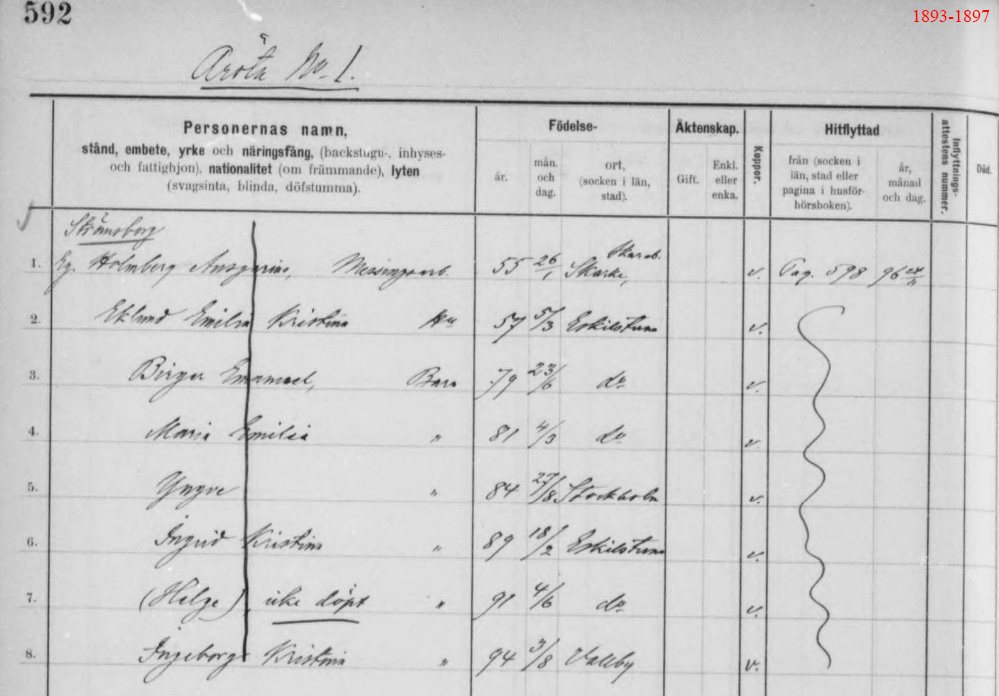 592
1893-1897
Aröta No 1.
Personernas namn,
stånd, embete, yrke och näringsfång, (backstugu-, inhyses-
och fattighjon), nationalitet (om främmande), lyten
(svagsinta, blinda, döfstumma).
Födelse-
år.
mån.
och
dag.
ort,
(socken i län,
stad).
Äktenskap.
Gift.
Enkl.
eller
enka.
Koppor.
Hitflyttad
från (socken i
län, stad eller
pagina i husför-
hörsboken).
år,
månad
och dag.
Inflyttnings-
attestens nummer.
Död.
Strömsborg
1. Eg. Holmberg Ansgarius, Messingsarb. 55 26/1 Skarab. Skarke, v. Pag. 598 96
2. Eklund Emilia Kristina Hu 57 5/3 Eskilstuna v.
3. Birger Emanuel, Barn 79 23/6 do v.
4. Maria Emilia " 81 4/3 do v.
5. Yngve " 84 27/8 Stockholm v.
6. Ingrid Kristina " 89 18/2 Eskilstuna v.
7. (Helge) icke döpt " 91 4/6 do v.
8. Ingeborg Kristina " 94 3/8 Valleby v.